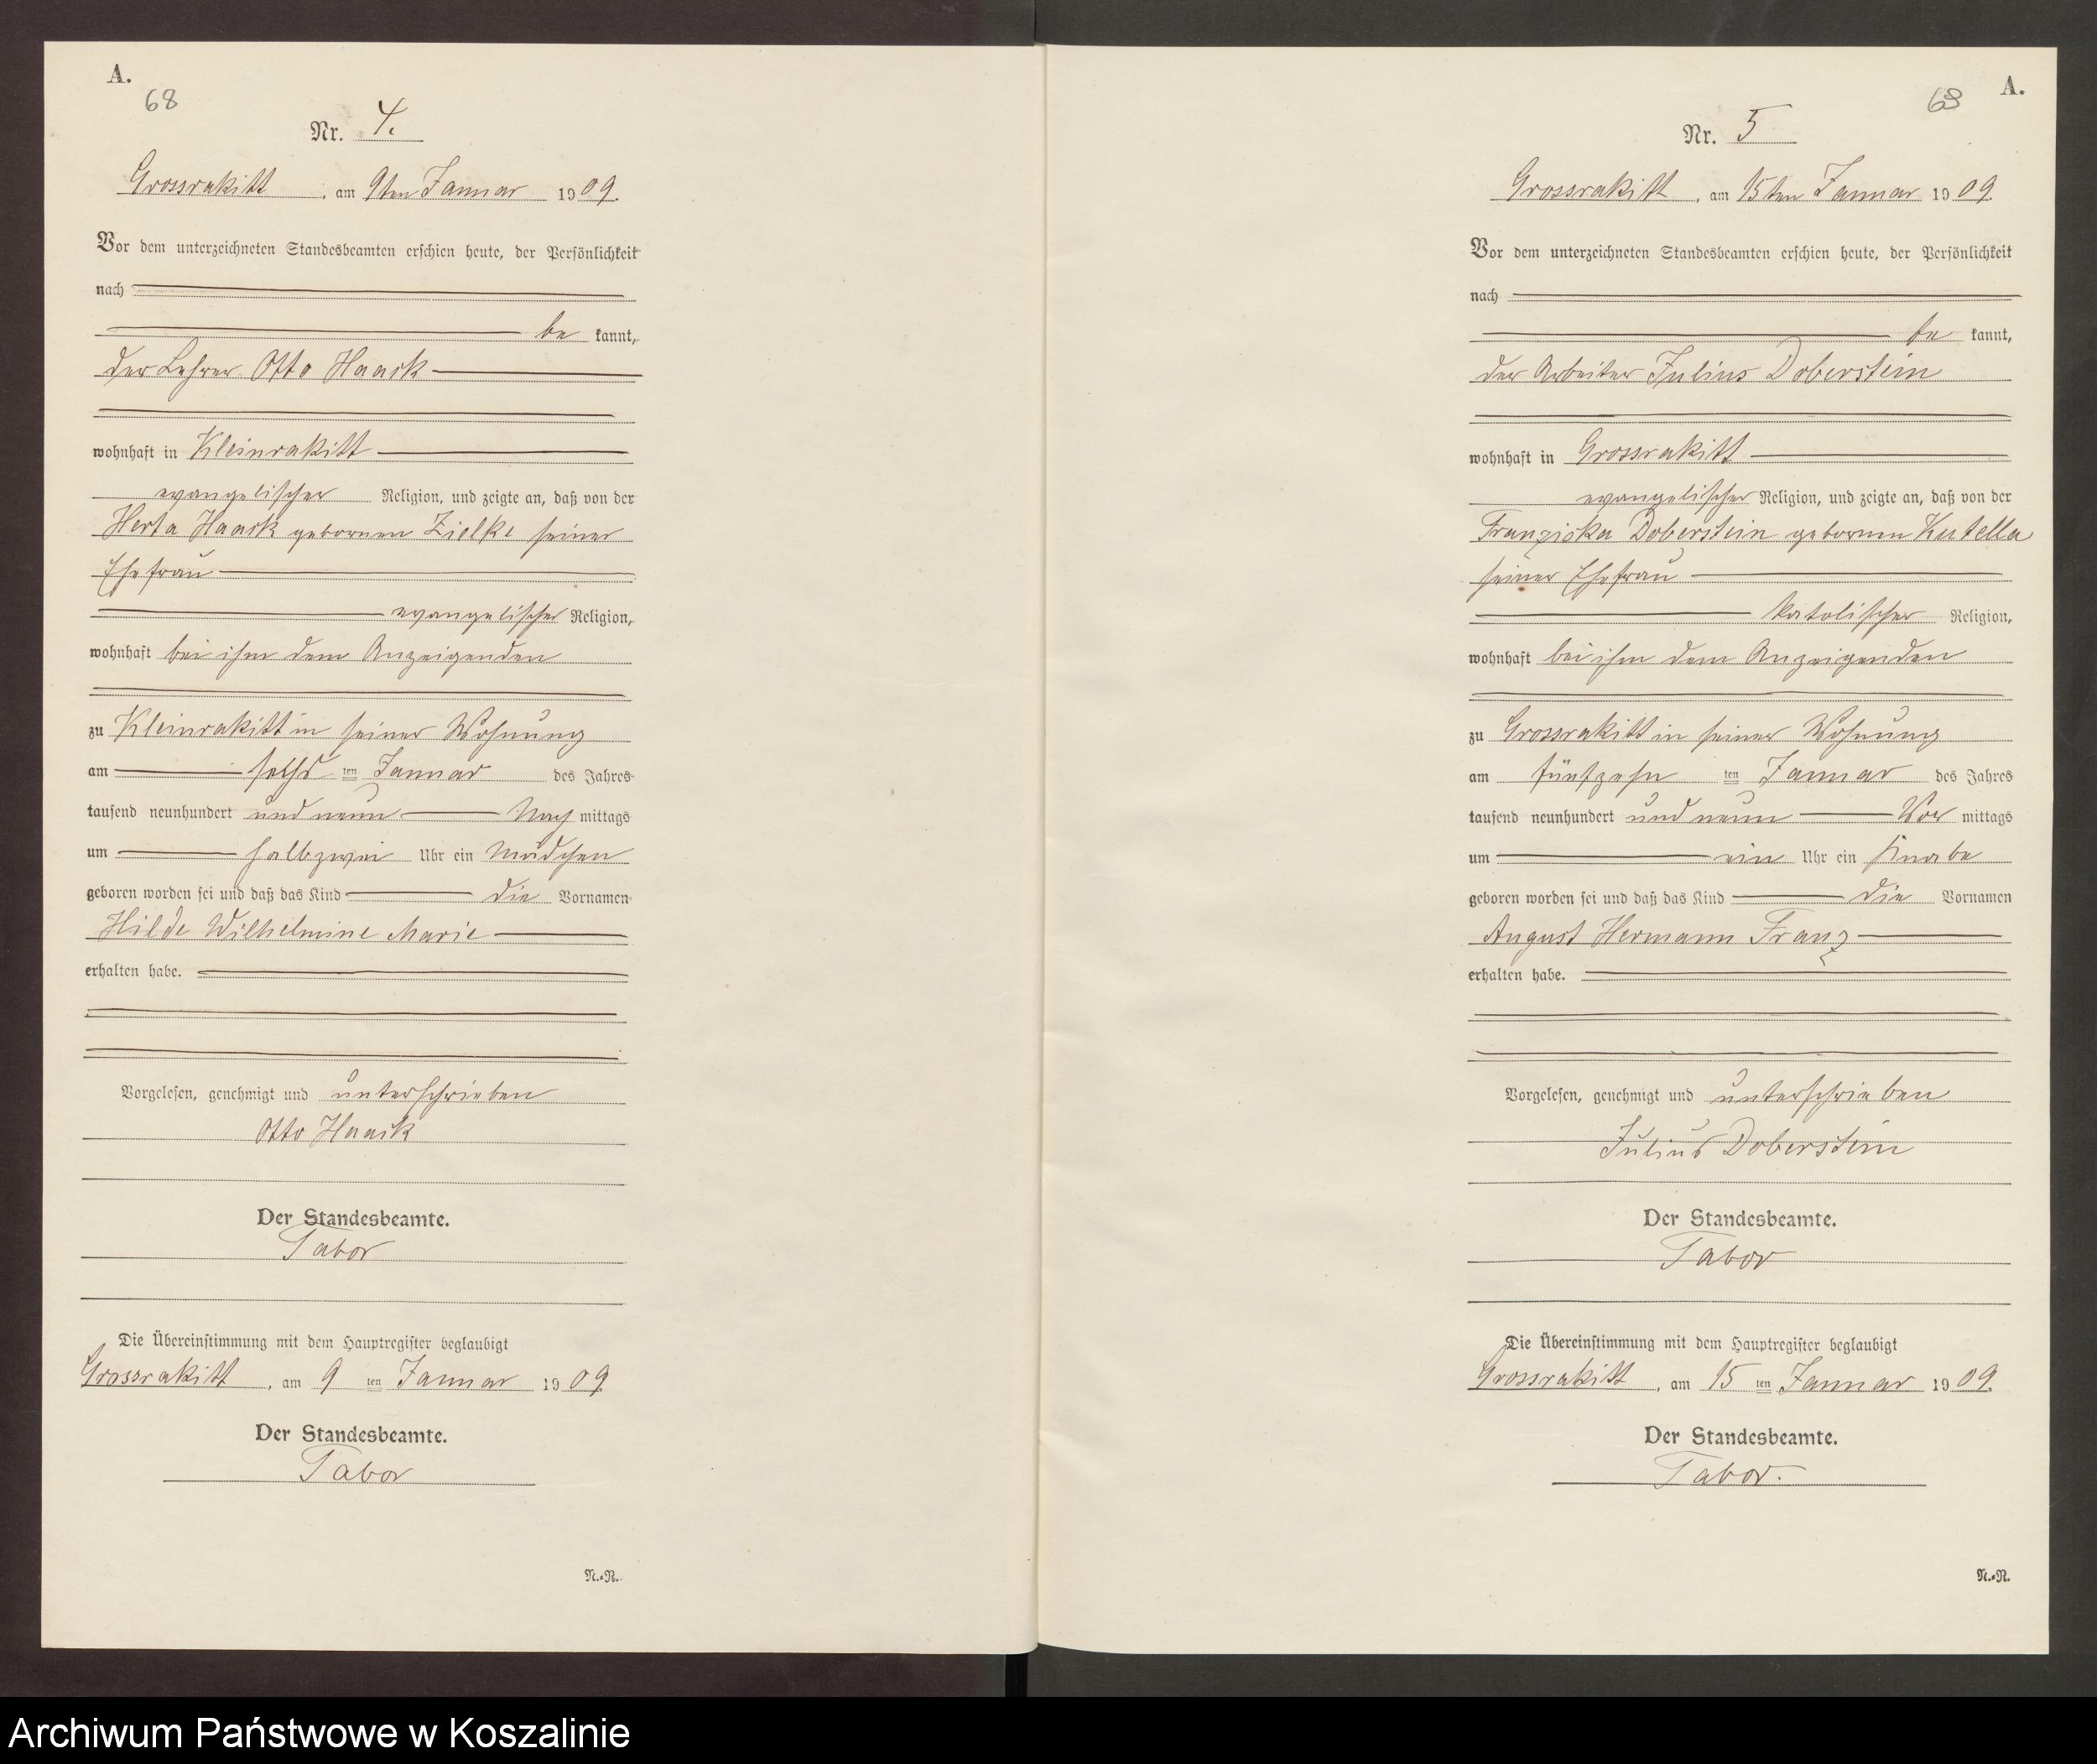 A.
68
Nr. 4.
Grossrakitt, am 9ten Januar 1909.
Vor dem unterzeichneten Standesbeamten erschien heute, der Persönlichkeit
nach
be kannt,
der Lehrer Otto Haack
wohnhaft in Kleinrakitt
evangelischer Religion, und zeigte an, daß von der
Herta Haack gebornen Zielke seiner
Ehefrau
evangelischer Religion,
wohnhaft bei ihm dem Anzeigenden
zu Kleinrakitt in seiner Wohnung
am sechs ten Januar des Jahres
tausend neunhundert und neun Nach mittags
um halbzwei Uhr ein Mädchen
geboren worden sei und daß das Kind die Vornamen
Hilde Wilhelmine Marie
erhalten habe.
Vorgelesen, genehmigt und unterschrieben
Otto Haack
Der Standesbeamte.
Tabor
Die Übereinstimmung mit dem Hauptregister beglaubigt
Grossrakitt, am 9 ten Januar 1909.
Der Standesbeamte.
Tabor
N.=N.
A.
Nr. 5
Grossrakitt, am 15ten Januar 1909.
Vor dem unterzeichneten Standesbeamten erschien heute, der Persönlichkeit
nach
be kannt,
der Arbeiter Julius Doberstein
wohnhaft in Grossrakitt
evangelischer Religion, und zeigte an, daß von der
Franziska Doberstein gebornen Kutella
seiner Ehefrau
katolischer Religion,
wohnhaft bei ihm dem Anzeigenden
zu Grossrakitt in seiner Wohnung
am fünfzehn ten Januar des Jahres
tausend neunhundert und neun Vor mittags
um ein Uhr ein Knabe
geboren worden sei und daß das Kind die Vornamen
August Hermann Franz
erhalten habe.
Vorgelesen, genehmigt und unterschrieben
Julius Doberstein
Der Standesbeamte.
Tabor
Die Übereinstimmung mit dem Hauptregister beglaubigt
Grossrakitt, am 15 ten Januar 1909.
Der Standesbeamte.
Tabor.
N.=N.
Archiwum Państwowe w Koszalinie